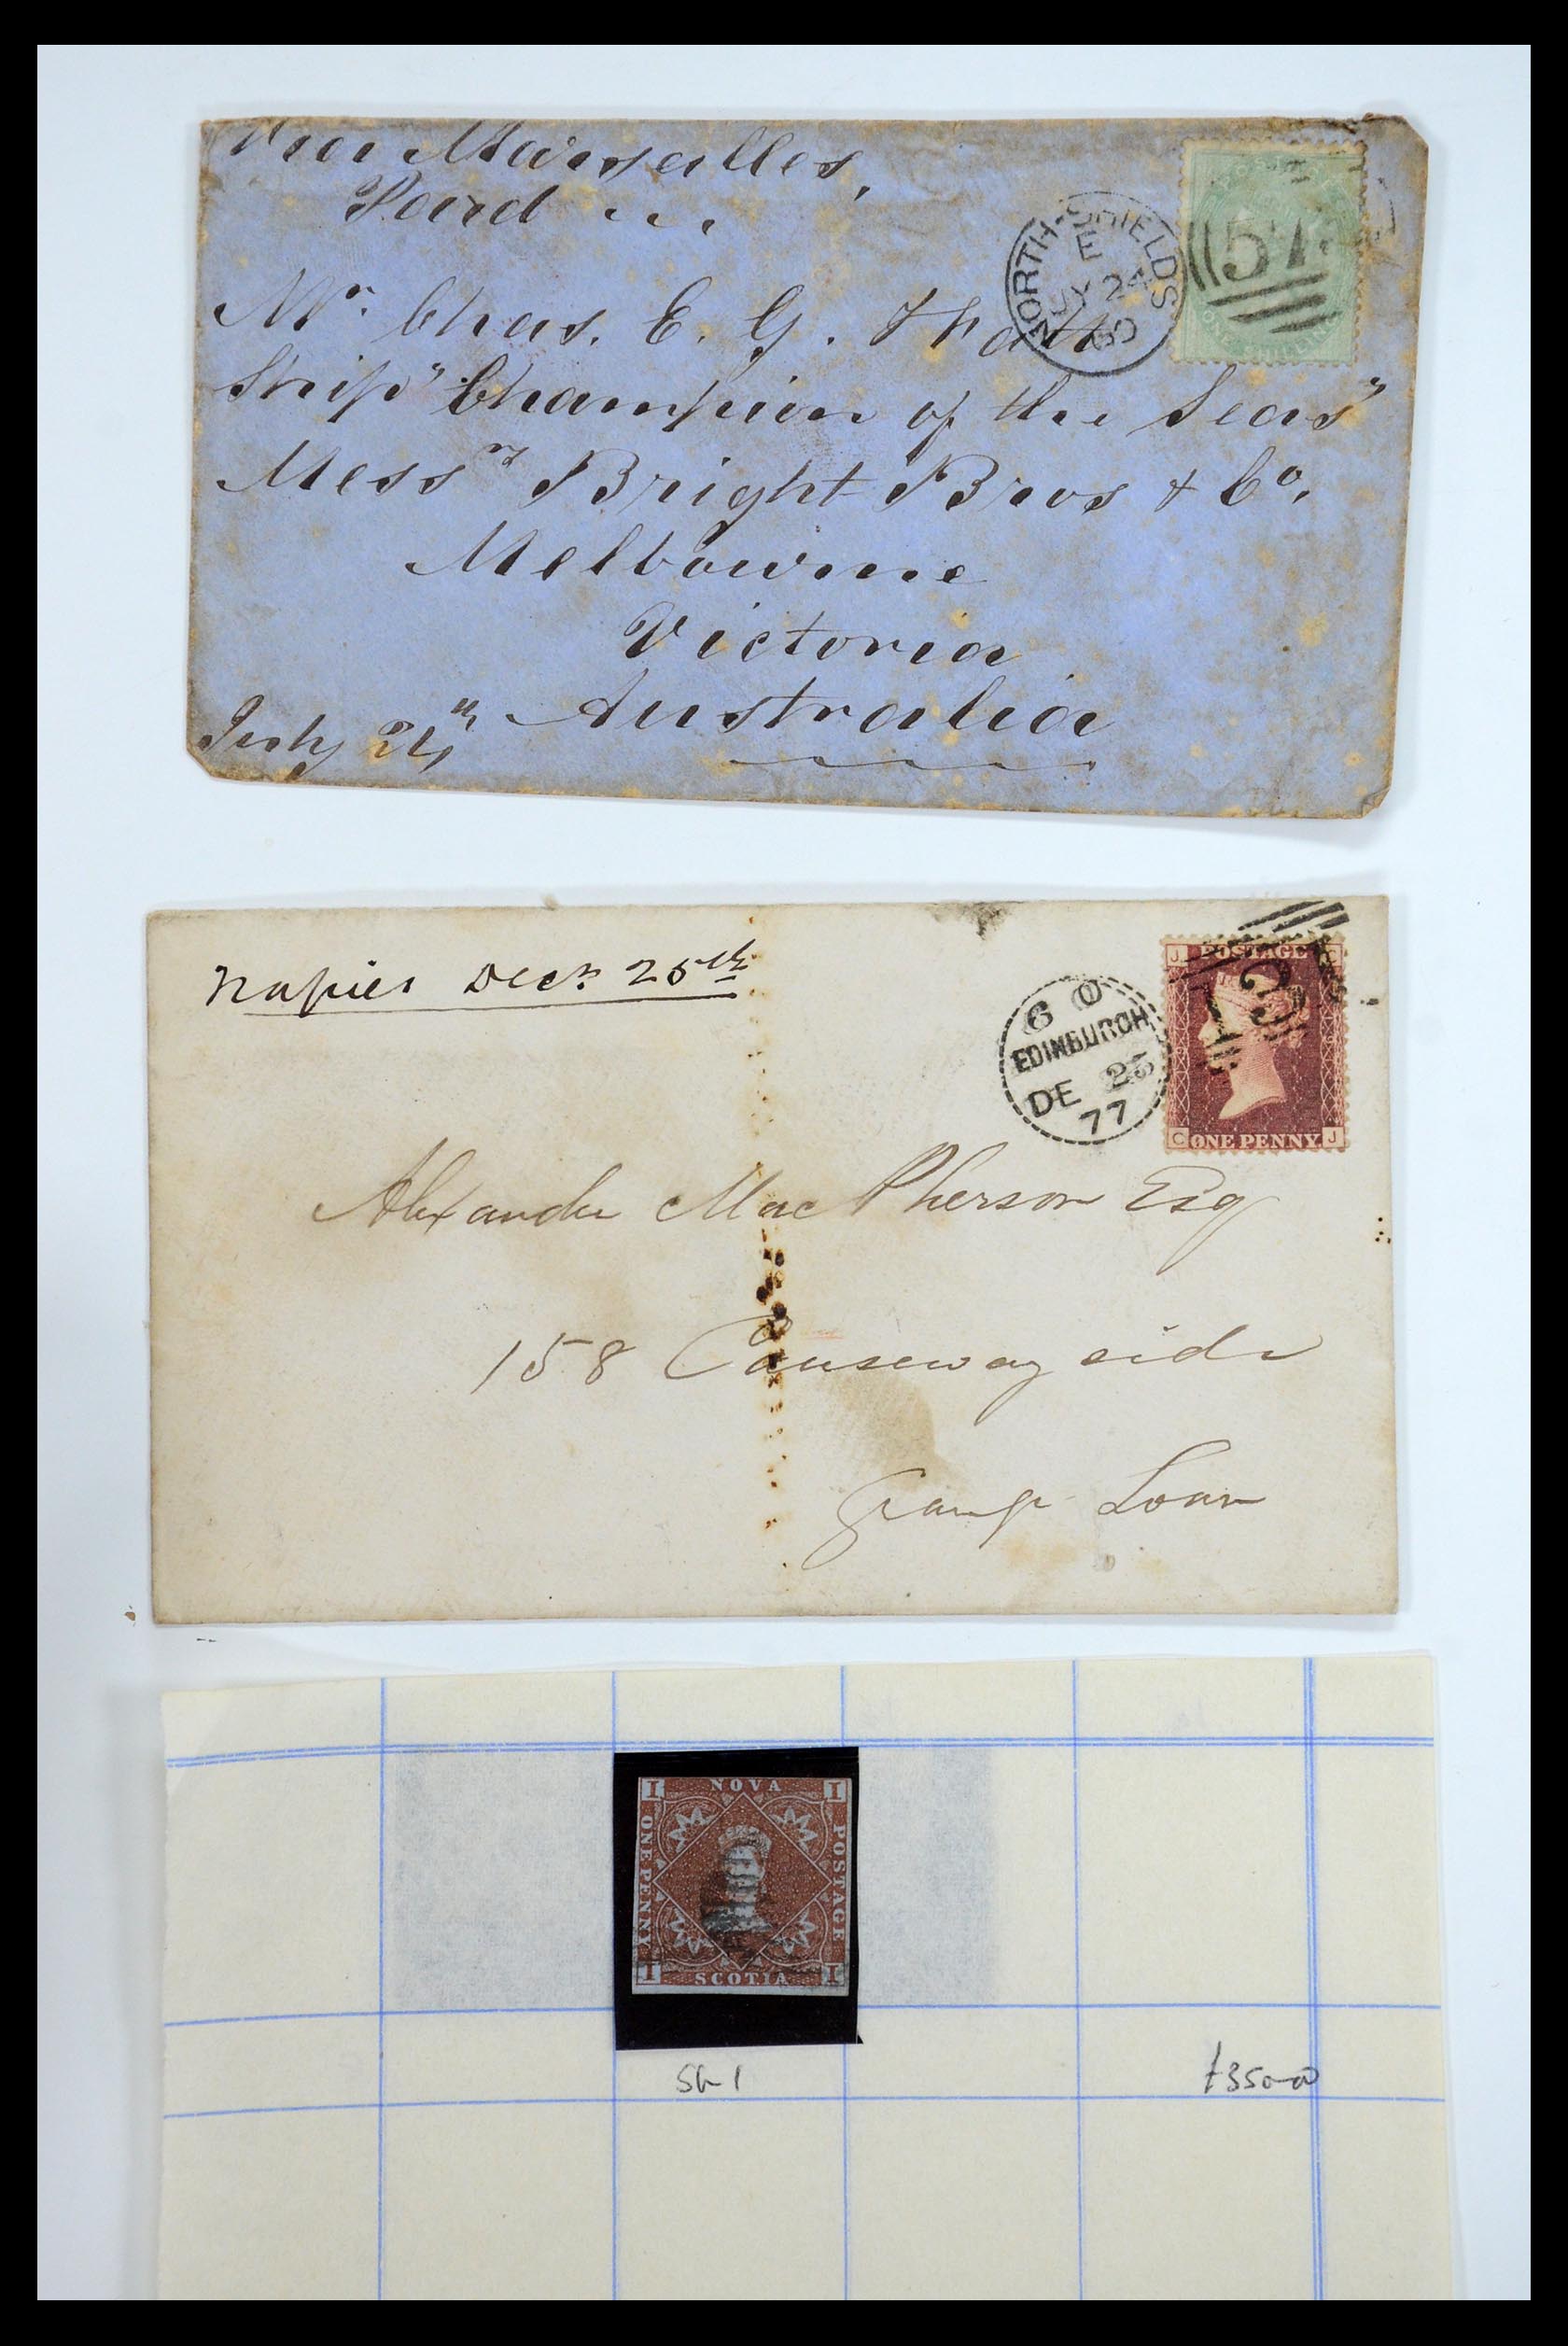 Via Marseilles,
Paid
NORTH-SHIELDS
E
JY 24
60
57
POSTAGE
ONE SHILLING
Mr. Chas. E. G.
Ship "Champion of the Seas"
Messrs Bright Bros & Co.
Melbourne
Victoria
Australia
July 24th
Napier Decr 25th
6 O
EDINBURGH
DE 25
77
J POSTAGE C
131
C ONE PENNY J
Alexander MacPherson Esq
158 Causeway side
Grange Loan
I NOVA I
ONE PENNY
POSTAGE
I SCOTIA I
SG 1
£3500